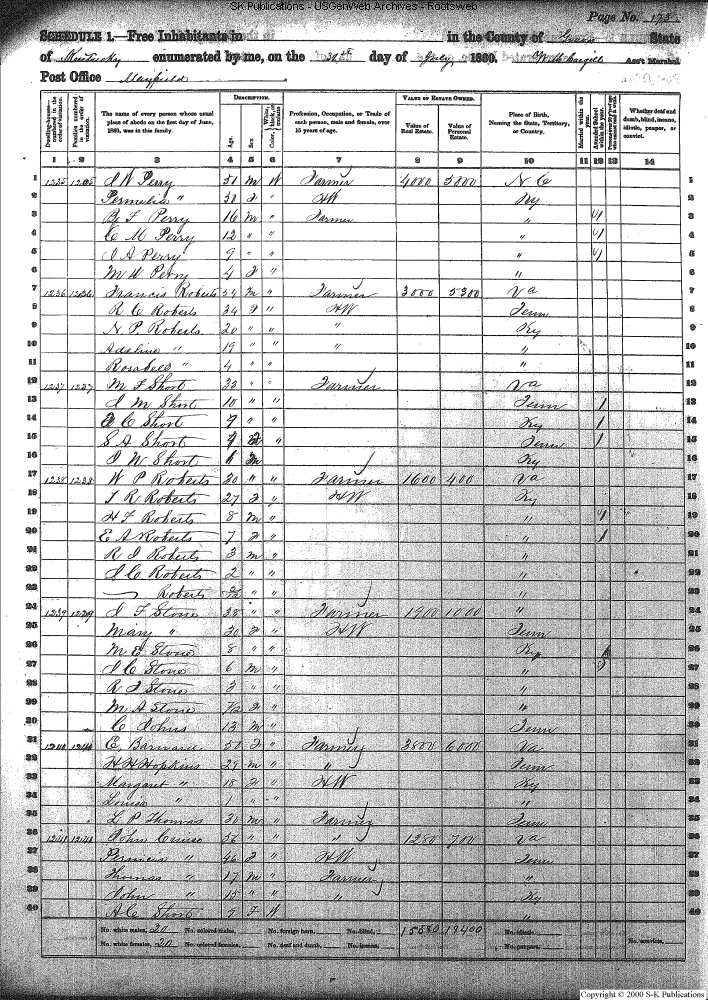 SK Publications - USGenWeb Archives - Rootsweb
Page No. 175
SCHEDULE 1.—Free Inhabitants in in the County of Graves State
of Kentucky enumerated by me, on the day of July 1860. Ass't Marshal
Post Office Mayfield
Dwelling-houses numbered in the order of visitation. Families numbered in the order of visitation. The name of every person whose usual place of abode on the first day of June, 1860, was in this family. DESCRIPTION. Age. Sex. Color, White, black, or mulatto. Profession, Occupation, or Trade of each person, male and female, over 15 years of age. VALUE OF ESTATE OWNED. Value of Real Estate. Value of Personal Estate. Place of Birth, Naming the State, Territory, or Country. Married within the year. Attended School within the year. Whether deaf and dumb, blind, insane, idiotic, pauper, or convict.
1 2 3 4 5 6 7 8 9 10 11 12 13 14
1 1235 1235 J W Perry 51 M W Farmer 4000 5000 N C 1
2 Permelia " 50 F " HW Ky 2
3 B F Perry 16 M " Farmer " 3
4 C M Perry 12 " " " 4
5 J A Perry 9 " " " 5
6 M W Perry 4 F " " 6
7 1236 1236 Francis Roberts 54 M " Farmer 3000 5300 Va 7
8 R C Roberts 34 F " HW Tenn 8
9 N P Roberts 20 " " " Ky 9
10 Adaline " 19 " " " " 10
11 Rosabell " 4 " " " 11
12 1237 1237 M F Short 33 " " Farmer Va 12
13 J M Short 10 " " Tenn 1 13
14 C Short " " Ky 1 14
15 S A Short " Tenn 1 15
16 J W Short M Ky 16
17 1238 1238 W P Roberts 30 " " Farmer 1600 400 Va 17
18 T R Roberts 27 F " HW Ky 18
19 H F Roberts 8 M " " 19
20 E A Roberts 7 F " " 1 20
21 R J Roberts 3 M " " 21
22 J C Roberts 2 " " " 22
23 Roberts " " " 23
24 1239 1239 J F Stone 38 " " Farmer 1900 1000 " 24
25 Mary " 30 F " HW Tenn 25
26 M E Stone 8 " " Ky 26
27 J C Stone 6 M " " 27
28 R J Stone 3 " " " 28
29 M A Stone F " " 29
30 C Johns 13 M " Tenn 30
31 1240 1240 E. 50 F " Farmer 3800 6000 Va 31
32 H H Hopkins 29 M " " Tenn 32
33 Margaret " 18 F " HW Ky 33
34 Louisa " 1 " " " 34
35 L P Thomas 30 M " Farmer Tenn 35
36 1241 1241 John 56 " " " 1280 700 Va 36
37 " 46 F " HW Tenn 37
38 Thomas " 17 M " Farmer " 38
39 John " 15 " " " Ky 39
40 A C Short 9 F W " 40
No. white males, 20 No. colored males, No. foreign born, No. blind, 15580 19400 No. idiotic,
No. white females, 20 No. colored females, No. deaf and dumb, No. insane, No. paupers, No. convicts,
Copyright © 2000 S-K Publications